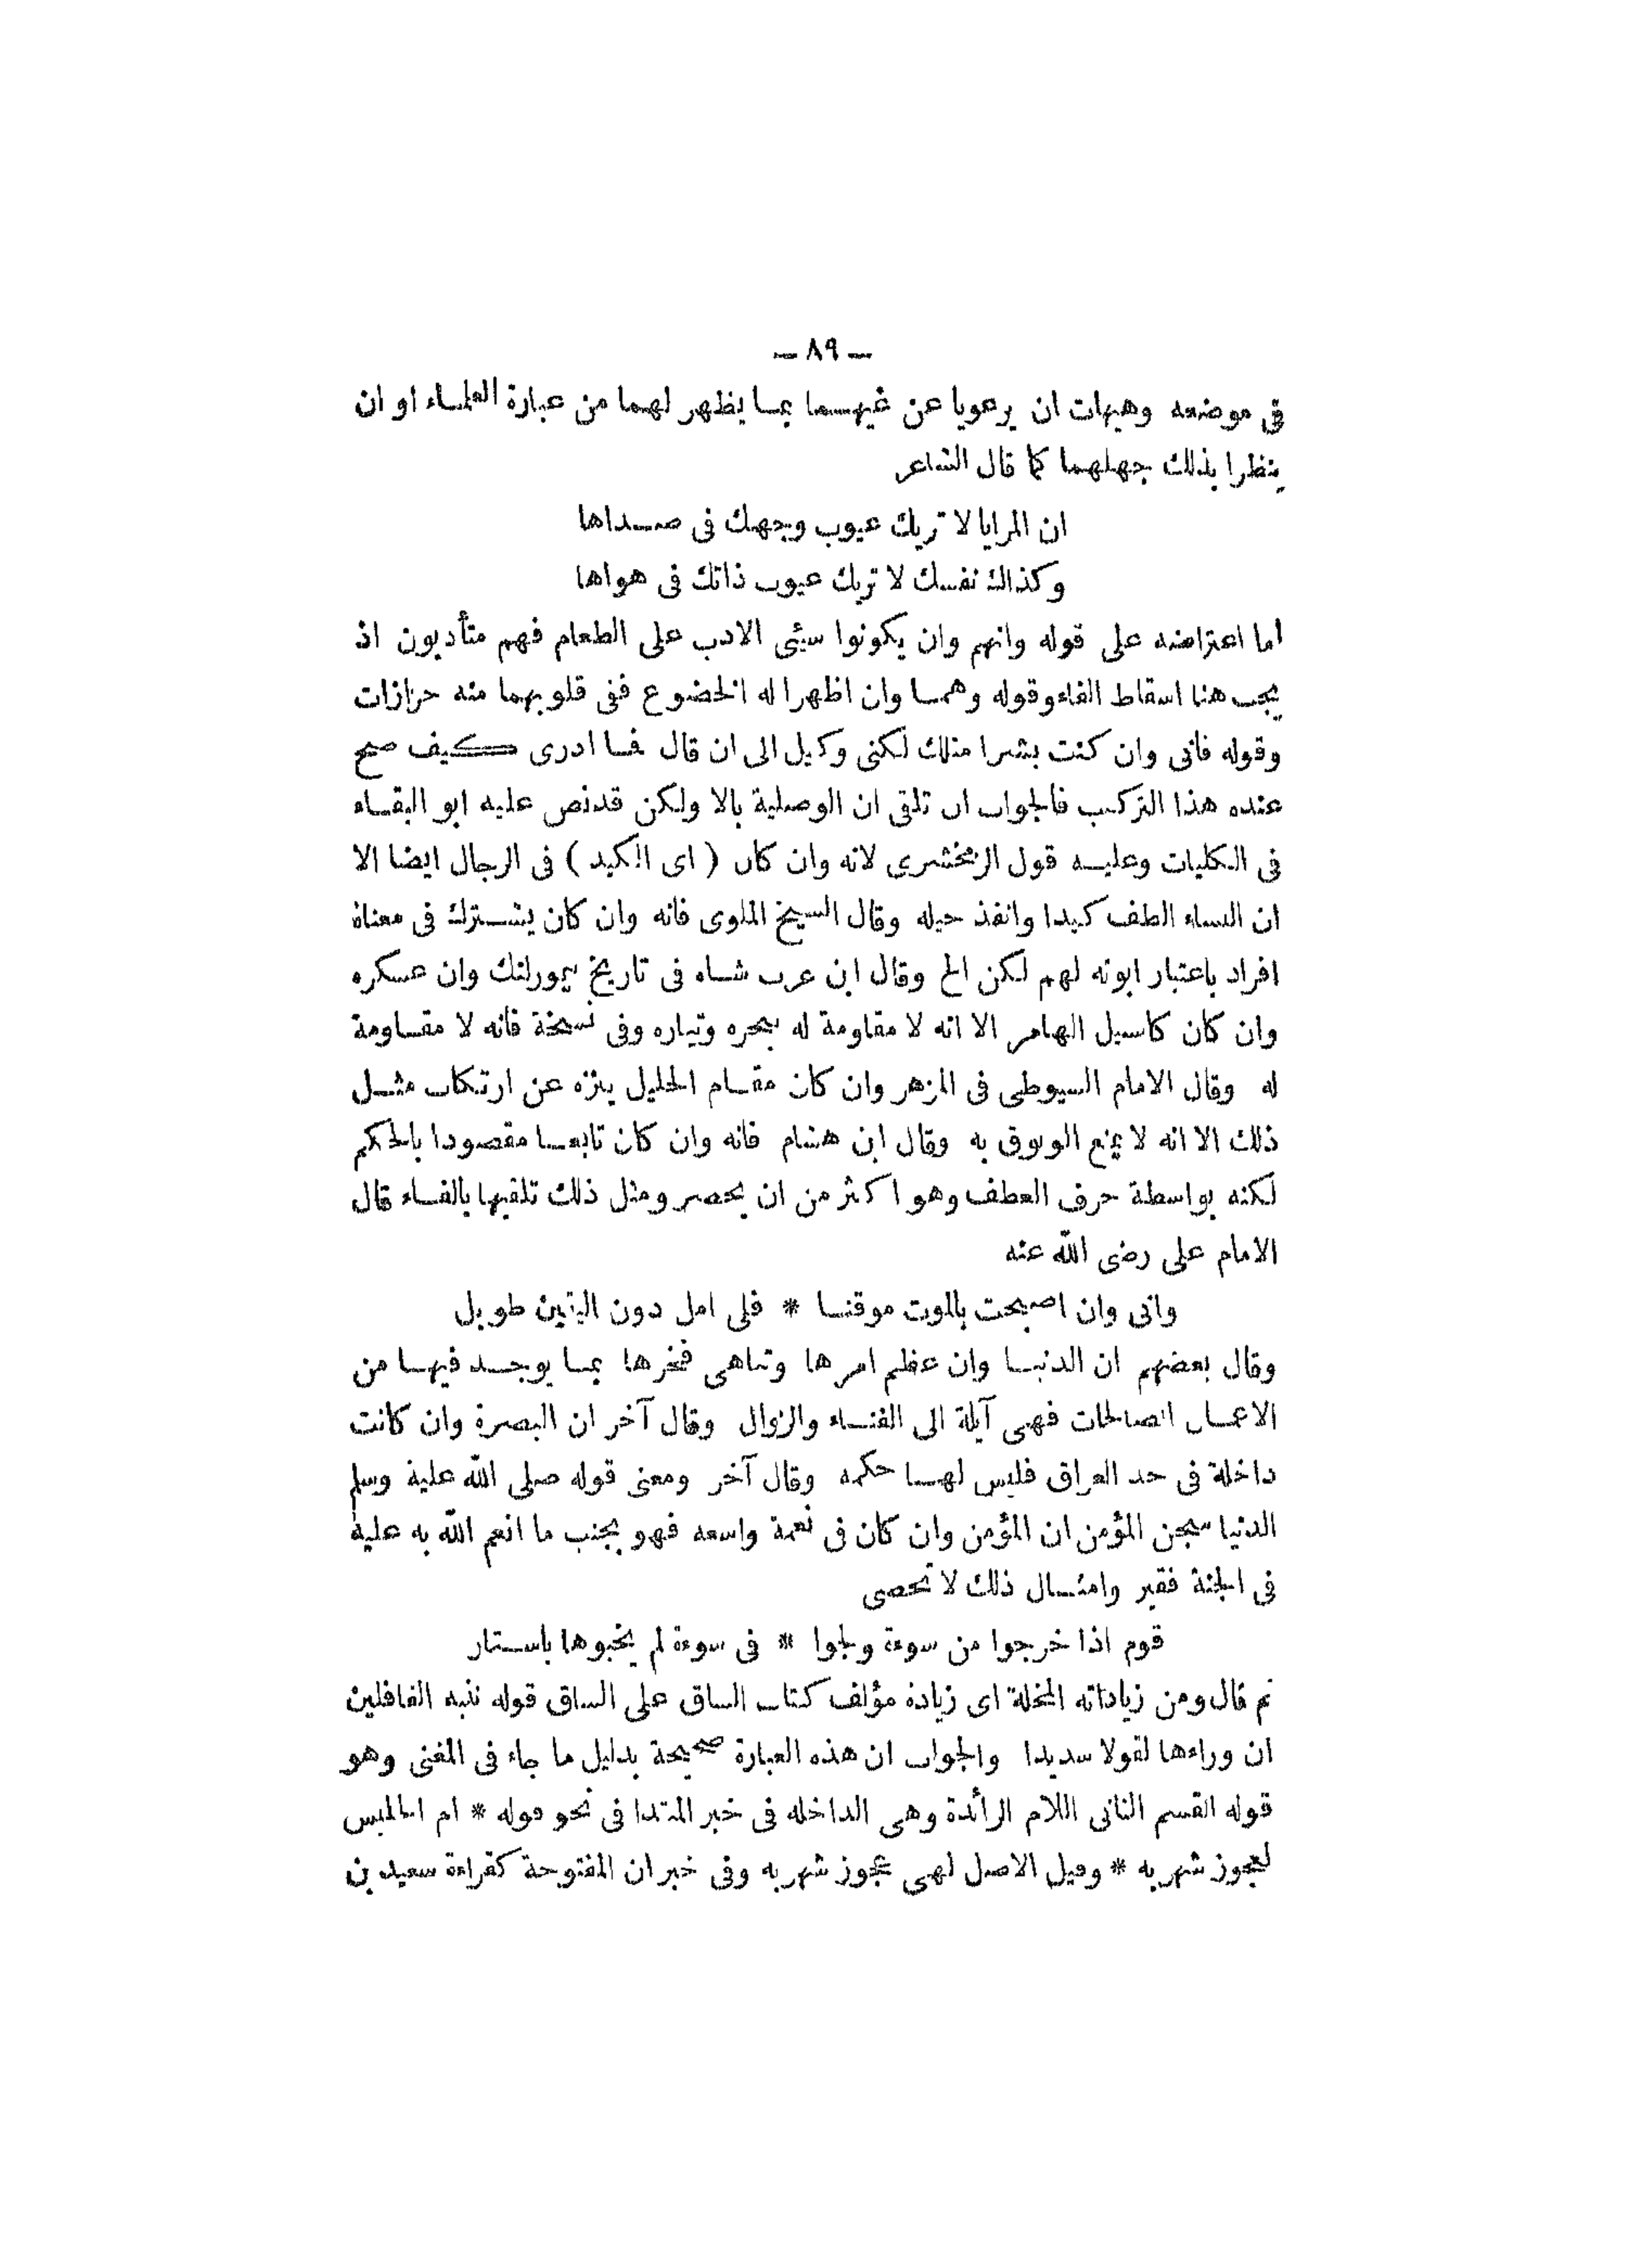 — ٨٩ —
فى موضعه وهيهات ان يرعويا عن غيهما بما يظهر لهما من عبارة العلماء او ان
ينظرا بذلك جهلهما كما قال الشاعر
ان المرايا لا تريك عيوب وجهك فى صداها
وكذاك نفسك لا تريك عيوب ذاتك فى هواها
اما اعتراضه على قوله وانهم وان يكونوا سيئى الادب على الطعام فهم متأدبون اذ
يجب هنا اسقاط الفاء وقوله وهما وان اظهرا له الخضوع ففى قلوبهما منه حزازات
وقوله فانى وان كنت بشرا مثلك لكنى وكيل الى ان قال فما ادرى كيف صح
عنده هذا التركيب فالجواب ان تلقى ان الوصلية بالا ولكن قد نص عليه ابو البقاء
فى الكليات وعليه قول الزمخشرى لانه وان كان ( اى الكيد ) فى الرجال ايضا الا
ان النساء الطف كيدا وانفذ حيله وقال الشيخ الملوى فانه وان كان يشترك فى معناه
افراد باعتبار ابوته لهم لكن الخ وقال ابن عرب شاه فى تاريخ تيمورلنك وان عسكره
وان كان كالسيل الهامر الا انه لا مقاومة له ببحره وتياره وفى نسخة فانه لا مقاومة
له وقال الامام السيوطى فى المزهر وان كان مقام الخليل ينزه عن ارتكاب مثل
ذلك الا انه لا يمنع الوثوق به وقال ابن هشام فانه وان كان تابعا مقصودا بالحكم
لكنه بواسطة حرف العطف وهو اكثر من ان يحصر ومثل ذلك تلقيها بالفاء قال
الامام على رضى الله عنه
وانى وان اصبحت بالموت موقنا * فلى امل دون اليقين طويل
وقال بعضهم ان الدنيا وان عظم امرها وتناهى فخرها بما يوجد فيها من
الاعمال الصالحات فهى آيلة الى الفناء والزوال وقال آخر ان البصرة وان كانت
داخلة فى حد العراق فليس لها حكمه وقال آخر ومعنى قوله صلى الله عليه وسلم
الدنيا سجن المؤمن ان المؤمن وان كان فى نعمة واسعه فهو بجنب ما انعم الله به عليه
فى الجنة فقير وامثال ذلك لا تحصى
قوم اذا خرجوا من سوءة ولجوا * فى سوءة لم يخبوها باستار
ثم قال ومن زياداته المخلة اى زيادة مؤلف كتاب الساق على الساق قوله ننبه الغافلين
ان وراءها لقولا سديدا والجواب ان هذه العبارة صحيحة بدليل ما جاء فى المغنى وهو
قوله القسم الثانى اللام الزائدة وهى الداخله فى خبر المبتدا فى نحو قوله * ام الحليس
لعجوز شهربه * وقيل الاصل لهى عجوز شهربه وفى خبر ان المفتوحة كقراءة سعيد بن